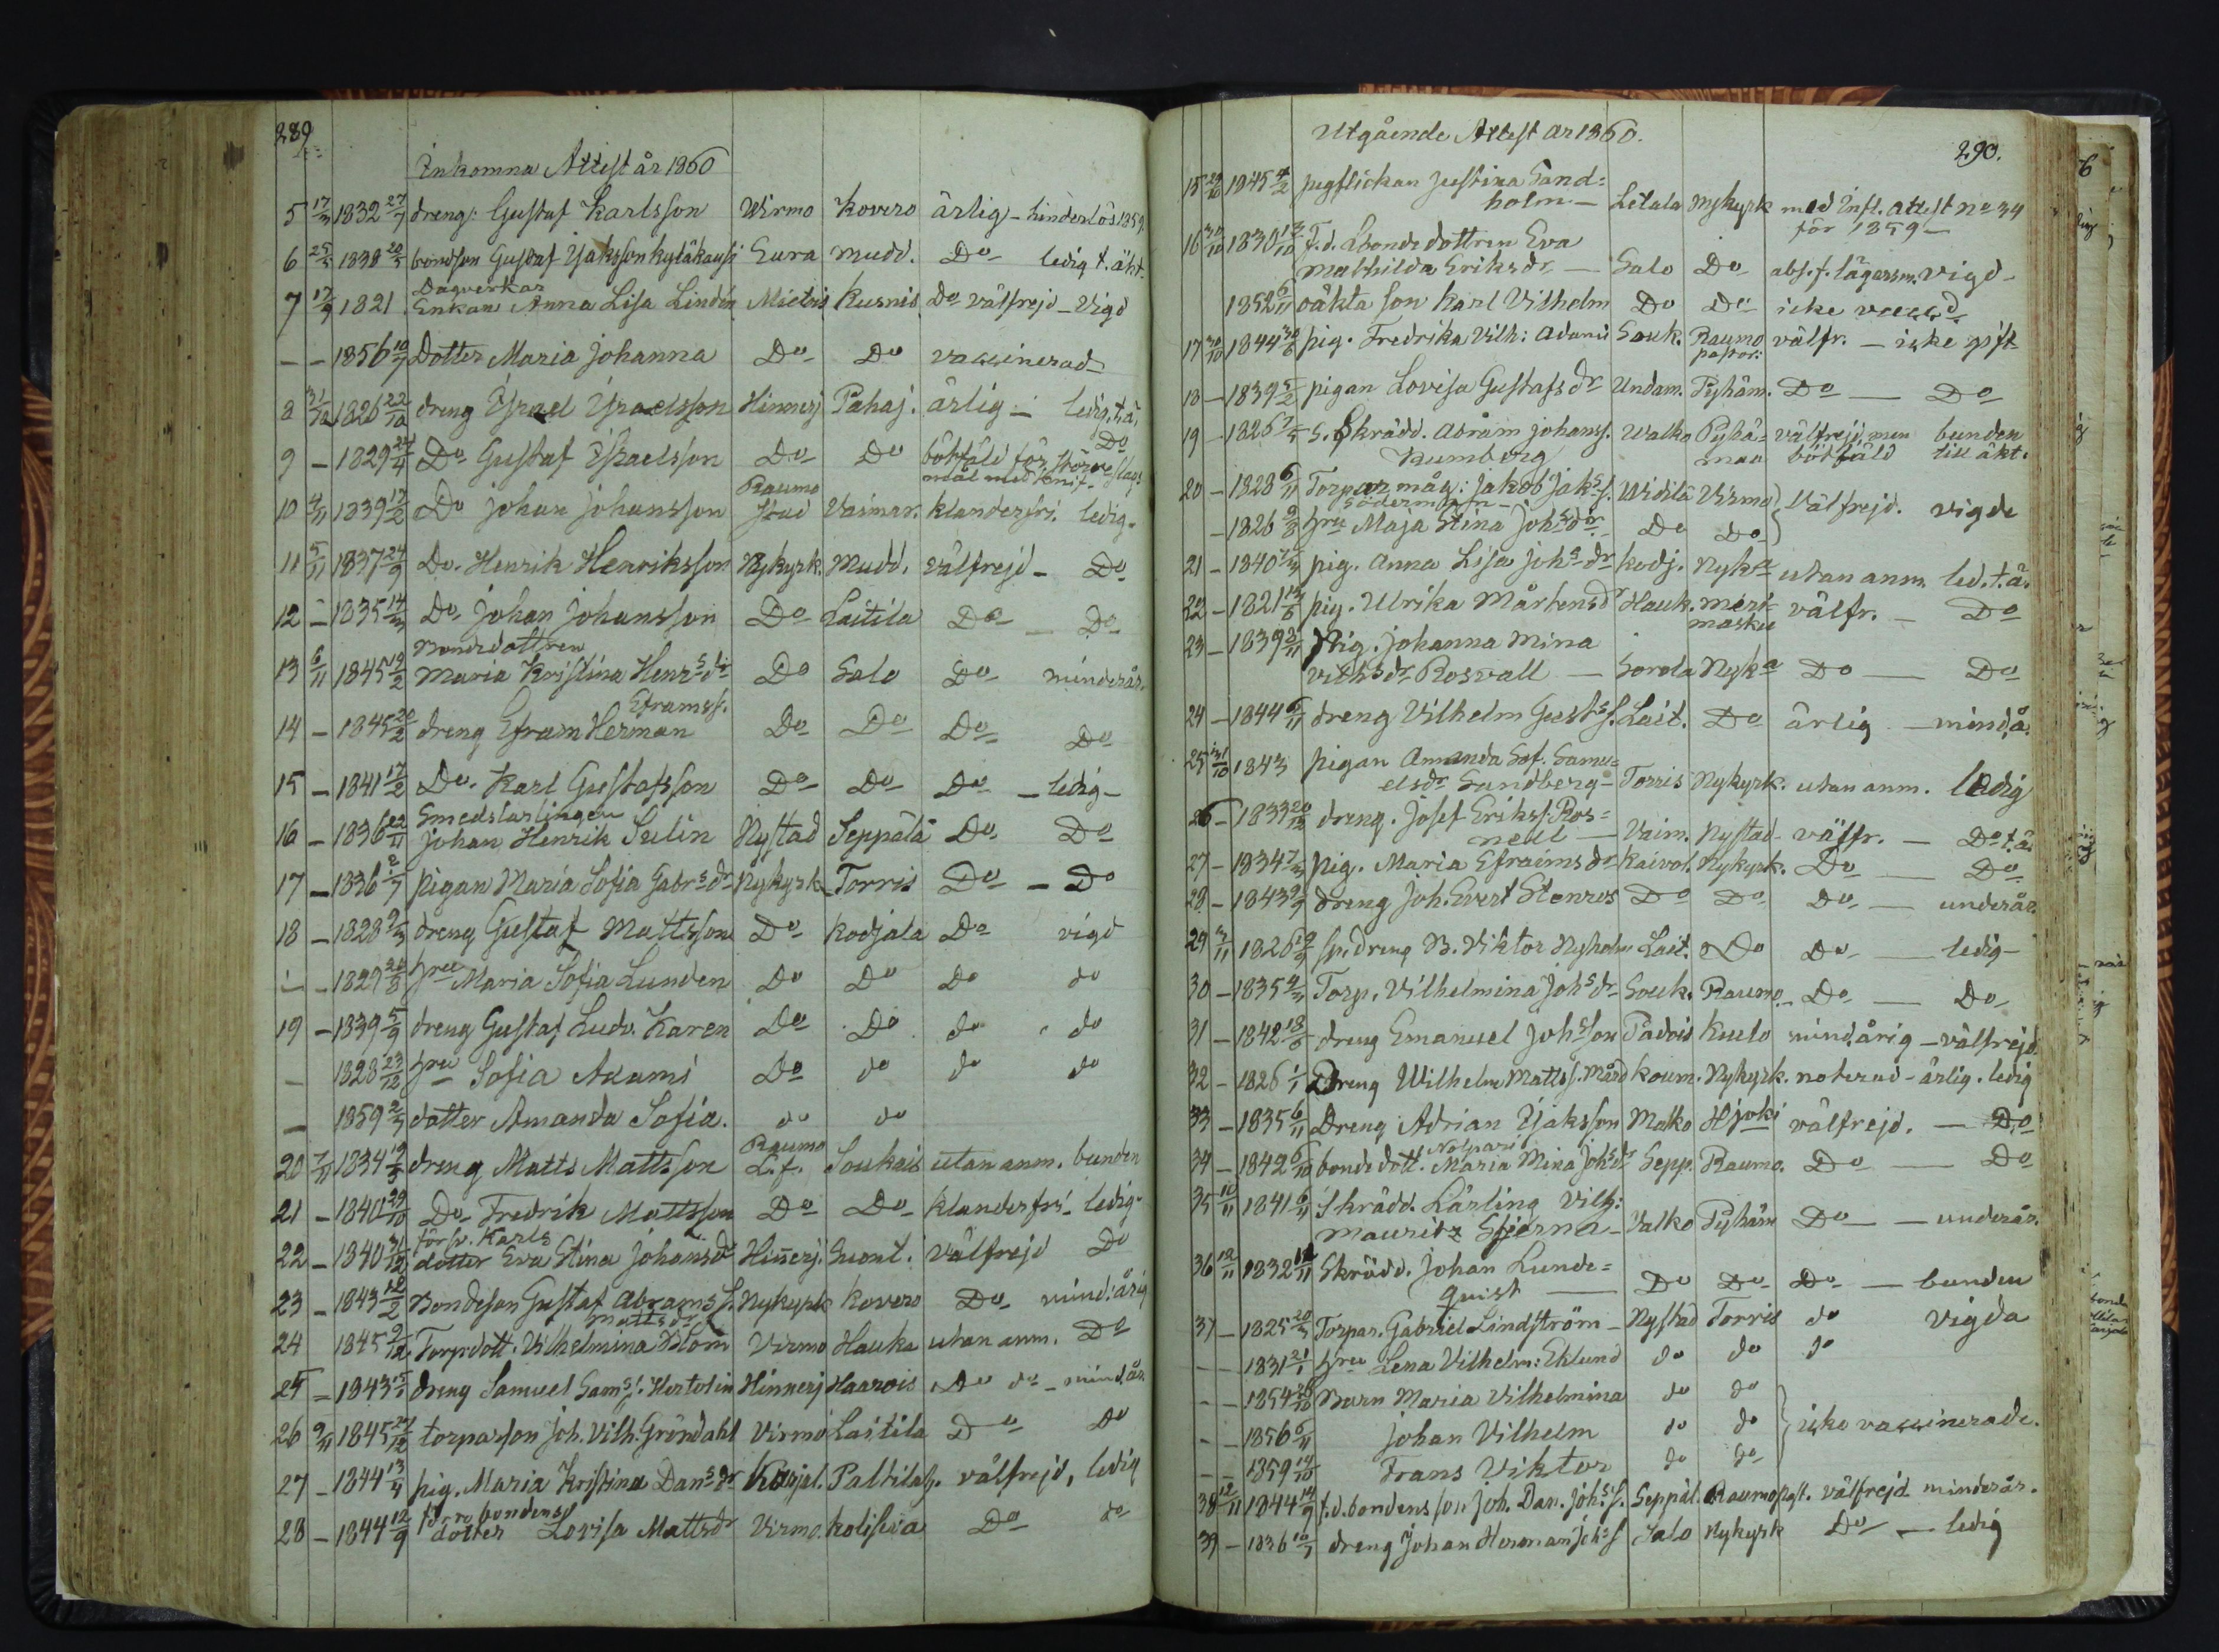 289
Inkomna Attest år 1860
5 17/3 1832 27/7 dreng: Gustaf Karlsson Wirmo Kovero ärlig - hinderlös 1859.
6 25/3 1838 20/3 bondson Gustaf Isaksson Eura mudd. Do ledig t. äkt.
Dagverkar
7 17/9 1821 Enkan Anna Lisa Lindén Mietois Kusnis Do välfrejd - Vigd
- - 1856 10/7 Dotter Maria Johanna Do Do vaccinerad
8 31/10 1826 22/10 dreng Israel Israelsson Hinnerj Pahaj. ärlig - ledig, t. ä.
9 - 1829 24/4 Do Gustaf Israelsson Do Do bötfäld för större slags- Do
mål med knif
Raumo
10 4/11 1839 17/2 Do Johan Johansson Stad Vaimar. klanderfri. ledig.
11 5/11 1837 24/9 Do. Henrik Henriksson Nykyrk. Mudd. välfrejd - Do
12 - 1835 14/3 Do Johan Johansson Do Laitila Do - Do
Bondedottren
13 6/11 1845 19/2 Maria Kristina Henr:s dr Do Salo Do minderår.
Eframss.
14 - 1845 20/2 dreng Efraim Herman Do Do Do Do
15 - 1841 17/2 Do. Karl Gustafsson Do Do Do - ledig -
Smedslärlingen
16 - 1836 22/11 Johan Henrik Sulin Nystad Seppälä Do Do
17 - 1836 2/7 pigan Maria Sofia Gabr:s dr Nykyrk Torris Do - Do
18 - 1828 9/3 dreng Gustaf Mattsson Do Kodjala Do vigd
- - 1829 26/8 hru Maria Sofia Lunden Do Do Do do
19 - 1839 5/9 dreng Gustaf Ludv. Karen Do Do do do
- 1828 23/12 hru Sofia Adami Do do do do
- 1859 2/3 dotter Amanda Sofia. do do
Raumo
20 7/11 1834 19/3 dreng Matts Mattsson L.f. Soukais utan anm. bunden
21 - 1840 29/10 Do Fredrik Mattsson Do Do klanderfri - ledig
förp. Karls
22 - 1840 31/12 dotter Eva Stina Johansdr Hinnerj. Suont. välfrejd Do
23 - 1843 12/2 Bondeson Gustaf Abramss. Nykyrk Kovero Do mind:årig
Mattsdr
24 1845 9/12 Torpdott. Vilhelmina Blom Virmo Hauka utan anm. Do
25 - 1843 dreng Samuel Sams:s. Hertolin Hinnerj Haarois Do do - mind.år.
26 9/11 1845 27/12 torparson Joh. Vilh. Gröndahl Virmo Laitila Do Do
27 - 1844 13/4 pig. Maria Kristina Dan:s dr Karjal. Paltila. välfrejd, ledig
bondens
28 - 1844 12/9 dotter Lovisa Mattsdr Virmo. Koliseva Do do
Utgående Attest år 1860.
290.
15 29/10 1845 4/2 pigflickan Justina Sand=
holm - Letala Nykyrk med Infl. attest No 34
för 1859 -
16 30/10 1830 13/10 F.d. Bondedottren Eva
Mathilda Eriksdr - Salo Do abs. f. lägersm. vigd -
1852 6/11 oäkta son Karl Vilhelm Do Do icke vaccd.
17 30/10 1844 30/6 pig. Fredrika Vilh: Adami Souk. Raumo välfr. - icke gift
pastor:
18 - 1839 5/2 pigan Lovisa Gustafsdr Undam. Pyhäm. Do - Do
19 - 1826 7/5 S. Skrädd. Abram Johanss. Walko Pyhä= välfrejd, men bunden
Rumberg maa bötfäld till äkt.
20 - 1828 6/11 Torparmåg: Jakob Jak:s s. Widilä Virmo Välfrejd. vigde
Söderman
- 1826 9/3 hru Maja Stina Joh:s dr Do Do
21 - 1840 7/3 pig. Anna Lisa Joh:s dr Kodj. Nyka utan anm. led. t. ä.
22 - 1821 pig. Ulrika Mårtensdr Hauk. Meri- välfr. - Do
masku
23 - 1839 2/11 Pig. Johanna Mina
Vilh:s dr Rosvall - Sorola Nyka Do - Do
24 - 1844 6/11 dreng Vilhelm Gust:s s. Lait. Do ärlig - mind.å.
25 31/10 1843 pigan Amanda Sof. Samu=
elsdr Sandberg - Torris Nykyrk. utan anm. ledig
26 - 1833 20/12 dreng. Josef Erikss. Ros=
nell - Vaim. Nystad - välfr. - Do t. ä.
27 - 1834 7/3 pig. Maria Efraimsdr Kaivol. Nykyrk. Do - Do
28 - 1843 9/9 dreng Joh. Evert Stenros Do Do Do - underår.
29 3/11 1826 19/9 sp. dreng B. Viktor Nyholm Lait. Do Do - ledig -
30 - 1835 4/3 Torp. Vilhelmina Joh:s dr Souk. Raumo - Do - Do
31 - 1842 18/6 dreng Emanuel Joh:sson Padois Kulo mind.årig - välfrejd.
32 - 1826 1/1 Dreng Wilhelm Mattss. Mård Koum. Nykyrk. noterad - ärlig. ledig
33 - 1835 6/11 Dreng Adrian Isaksson Malko Hjoki välfrejd. - Do
Nolpari
34 - 1842 6/10 bondedott. Maria Mina Joh:s dr Sepp. Raumo. Do - Do
35 10/11 1841 6/11 Skrädd. Lärling Vilh:
Mauritz Stjerna - Valko Pyhäm Do - - underår.
36 12/11 1832 12/11 Skrädd. Johan Lunde=
quist - Do Do Do - bunden
37 - 1825 20/3 Torpar. Gabriel Lindström - Nystad Torris do vigda
- - 1831 21/1 hru Lena Vilhelm: Eklund do do do
- - 1854 26/10 Barn Maria Vilhelmina do do
- - 1856 6/11 Johan Vilhelm do do icke vaccinerade.
- - 1859 14/10 Frans Viktor do do
38 12/11 1844 14/9 f.d. bondens son Joh. Dan. Joh:s s. Seppäl. Raumo past. välfrejd minderår.
39 - 1836 10/7 dreng Johan Herman Joh:s s Salo Nykyrk Do - ledig